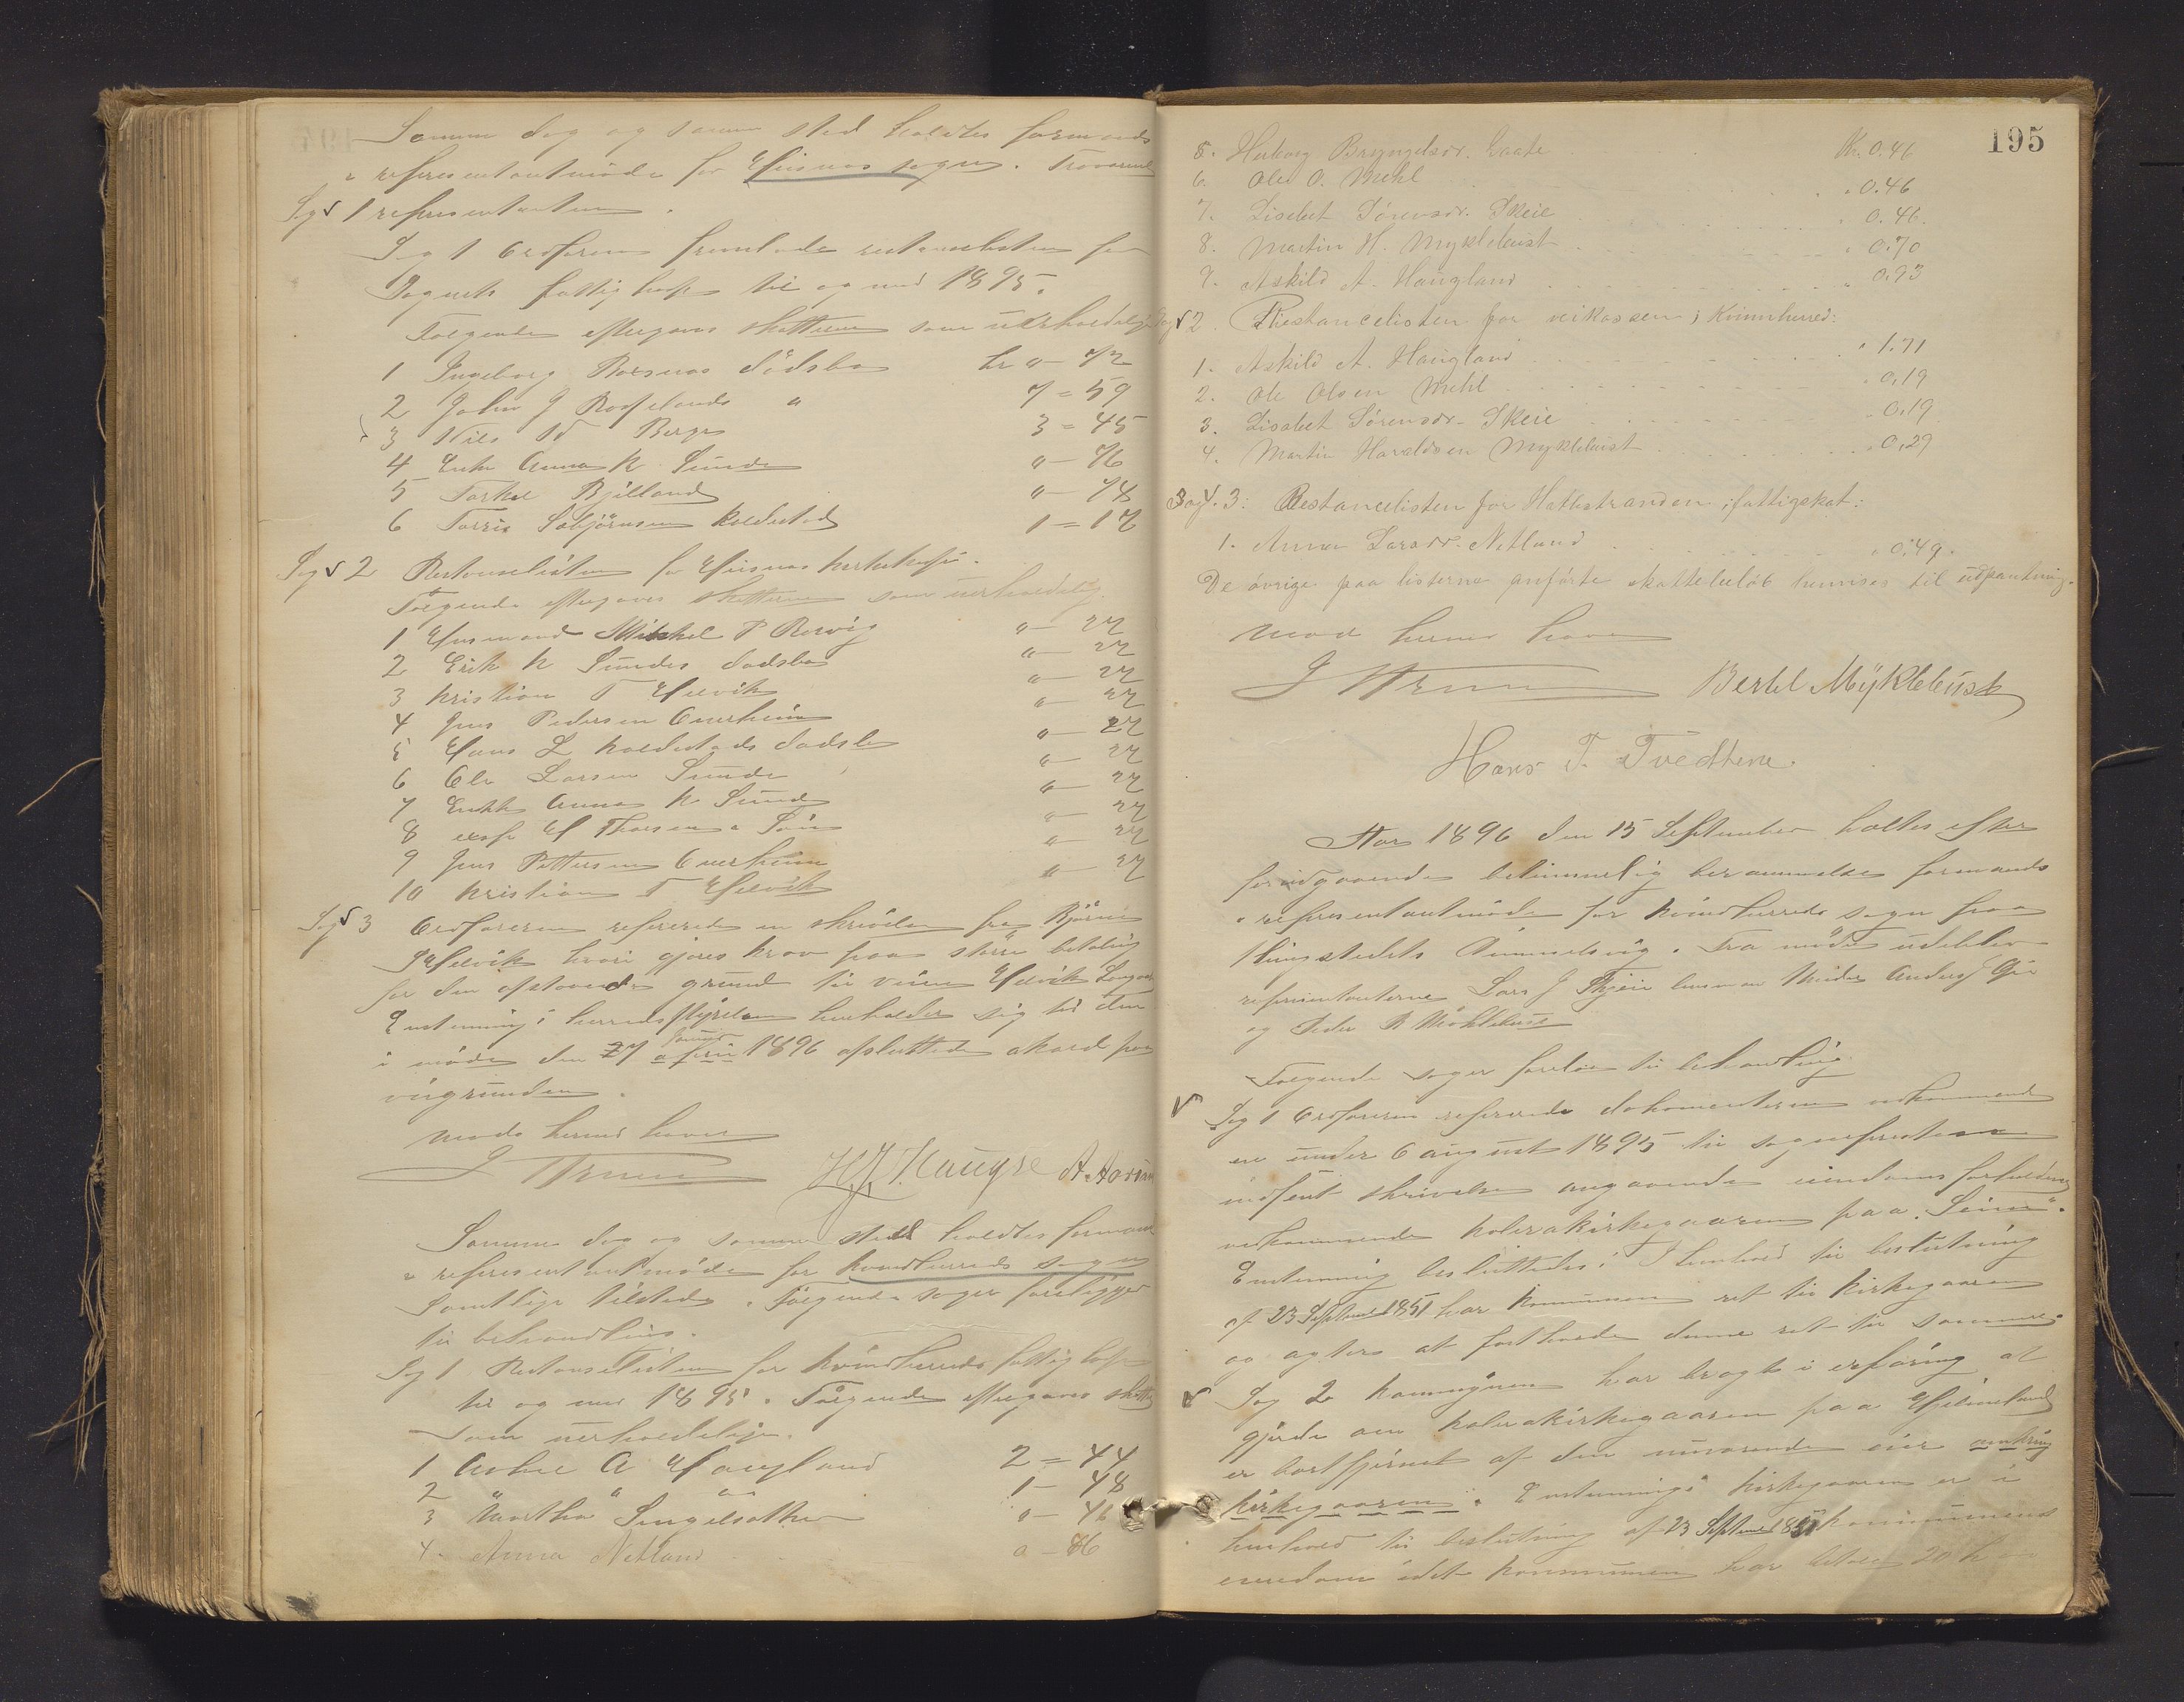 Samme dag og samme sted holdtes formands
& representantmöde for Husnes sogn. Fraværende
Sag 1 representanten.
Sag 1 Ordföreren fremlagde restancelisten for
Sognets fattigkasse til og med 1895.
Fölgende eftergaves skatterne som uerholdelige
1 Ingeborg Rösnes dödsbo kr " - 72
2 John J Rosselands " 7 = 59
3 Nils Berge 3 = 45
4 Enke Anna K Sunde " - 76
5 Torkel Bjelland " - 78
6 Torris Sebjörnsen Koldestad 1 = 17
Sag 2 Restancelisten for Husnes kirkekasse.
Fölgende eftergaves skatterne som uerholdelig.
1 Husmand Mikkel P Rørvig " - 27
2 Erik K Sundes dødsbo " - 27
3 Kristian T Helvik " - 27
4 Jens Pedersen Onerheim " - 27
5 Hans L Koldestads dødsbo " - 27
6 Ole Larsen Sunde " - 27
7 Enke Anna K Sunde " - 27
8 H Thorsen & Sön " - 27
9 Jens Pettersen Onerheim " - 27
10 Kristian T Helvik " - 27
Sag 3 Ordföreren refererede en skrivelse fra Björne
Helvik hvori gjøres krav paa större betaling
for den afstaaede grund til veien Helvik
Enstemmig: herredsstyrelsen henholder sig til den
i möde den 27 april 1896 afsluttede akord paa
veigrunden.
Möde hermed hævet
H. J. Haugse A. Aarsan
Samme dag og samme sted holdtes formands
& representantmöde for Kvindherreds sogn
Samtlige tilstede. Fölgende sager foreligger
til behandling.
Sag 1 Restancelisten for Kvindherreds fattigkasse
til og med 1895. Fölgende eftergaves skatter
som uerholdelige.
1 Askel A Haugland 2 = 44
2 " " " 1 - 48
3 Martha " - 46
4. Anna Netland " - 86
195
5. Herborg Bryngelsdr. Gaate Kr. 0.46
6. Ole O. Mehl " 0.46
7. Lisabet Sörensdr. Skeie " 0.46.
8. Martin H. Myklebust " 0.70
9. Askild A. Haugland " 0.93
Sag 2. Restancelisten for veikassen i Kvinnherred:
1. Askild A. Haugland " 1.71
2. Ole Olsen Mehl " 0,19
3. Lisabet Sörensdr. Skeie " 0.19
4. Martin Haraldsen Myklebust " 0,29
Sag. 3: Restancelisten for Hatlestranden; fattigskat:
1. Anna Larsdr. Netland " 0.49.
De övrige paa listerne anførte skattebelöb henvises til udpantning.
Möde hermed hævet
Bertel Myklebust
Hans T. Tvedtene.
Aar 1896 den 15 September holtes efter
forudgaaende belovmmelig berammelse formands
& representantmöde for Kvindherreds sogn paa
thingstedet Ømmelsvig. Fra möde udeblev
representanterne Lars J Skjeie lensman Anders
og Peder B Möklebust
Fölgende sager forelaa til behandling
Sag 1 Ordföreren refererede dokumenterne vedkommende
en under 6 august 1895 til sognepresten
indsent skrivelse angaaende eiendomsforholdene
vedkommende kolerakirkegaaren paa
Enstemmig besluttedes: I henhold til beslutning
af 23 September 1851 har kommunen ret til kirkegaaren
og agtes at fortholde denne ret til samme.
Sag 2 Kommunen har bragt i erfaring at
gjerde om kolerakirkegaaren paa
er bortfjernet af den nuværende eier omkring
kirkegaaren. Enstemmig: kirkegaaren er i
henhold til beslutning af 23 September 1851 kommunens
eiendom idet kommunen har betalt 20 kr